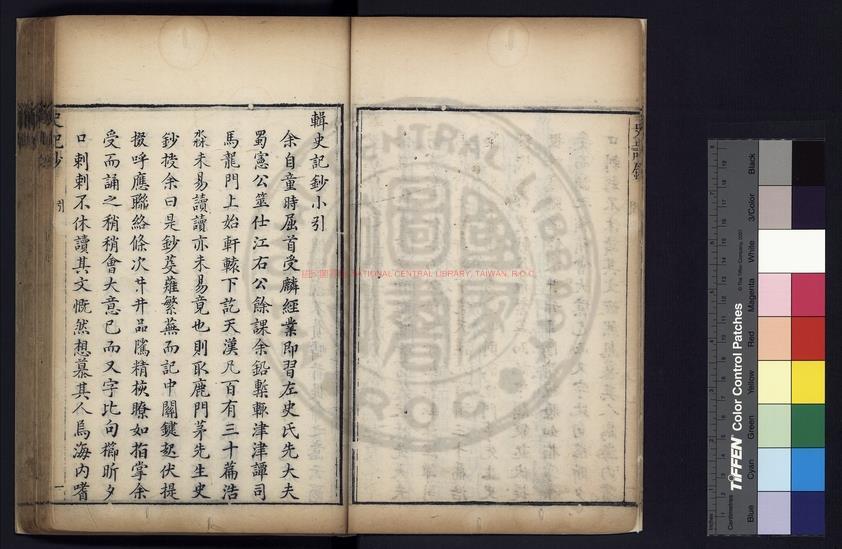 輯史記鈔小引
余自童時屈首受麟經業即習左史氏先大夫
蜀憲公筮仕江右公餘課余鉛槧輒津津譚司
馬龍門上始軒轅下訖天漢凡百有三十篇浩
淼未易讀讀亦未易竟也則取鹿門茅先生史
鈔授余曰是鈔芟薙繁蕪而記中關鍵起伏提
掇呼應聯絡條次井井品隲精核瞭如指掌余
受而誦之稍稍會大意已而又字比句櫛昕夕
口剌剌不休讀其文慨然想慕其人焉海內嗜
史記鈔
引
一
NATIONAL CENTRAL LIBRARY, TAIWAN, R.O.C.
TIFFEN Color Control Patches
© The Tiffen Company, 2007
Inches
Centimetres
Blue
Cyan
Green
Yellow
Red
Magenta
White
3/Color
Black